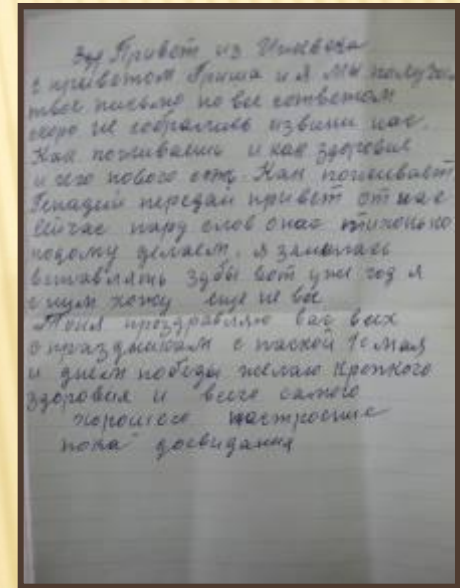 Привет из Ижевска
с приветом Гриша и я мы получили
твое письмо но все с ответом
скоро не собрались извини нас.
Как поживаеш и как здоровие
и чего нового есть. Как поживает
Генадий передай привет от нас
сейчас пару слов о нас тихонько
делаем. я замылась
вставлять зубы вот уже год я
с ним хожу еще не все
Тоня проздравляю вас всех
с праздником с паской 1е мая
и днем победы желаю крепкого
здоровия и всего самого
хорошего настроение
пока досвидания